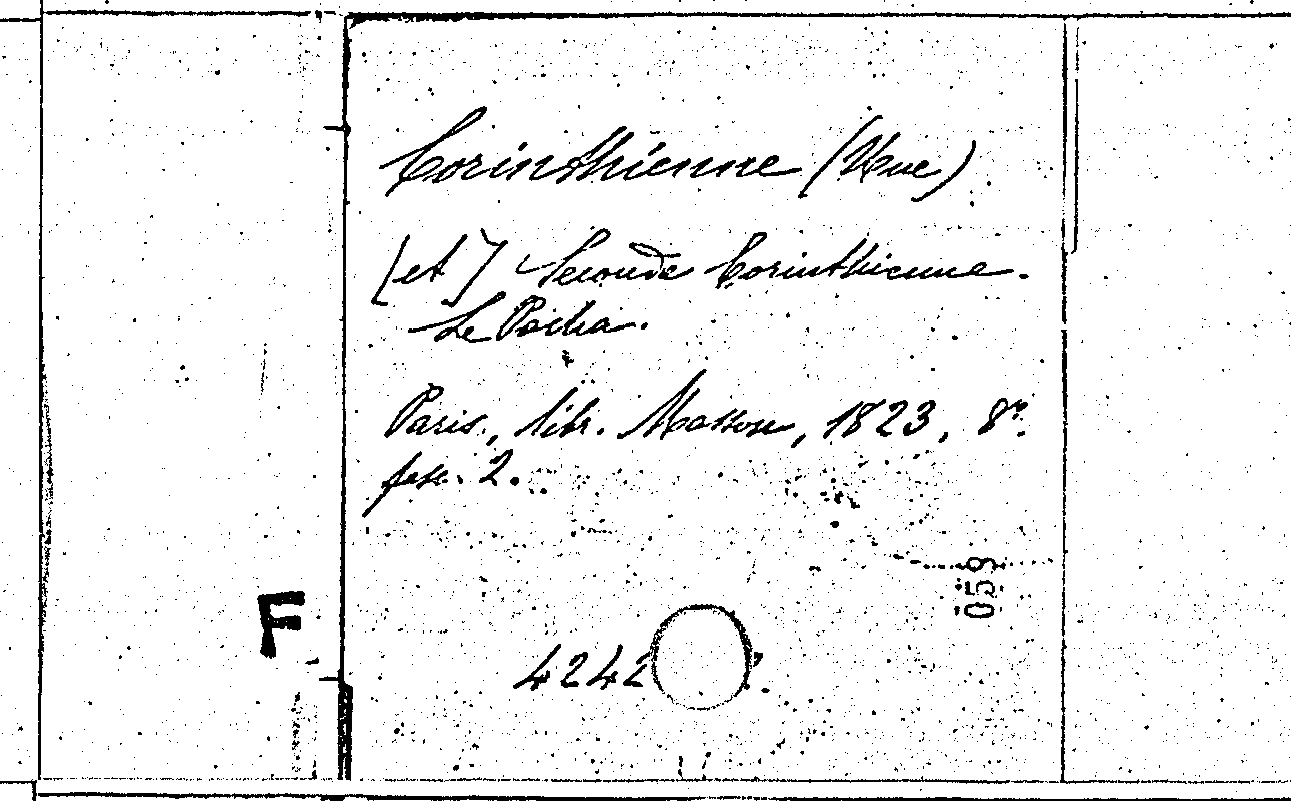 Corinthienne (Une)
[et] Seconde Corinthienne.
Le Pacha.
Paris, libr. Masson, 1823, 8º.
fasc. 2.
059
F
4242